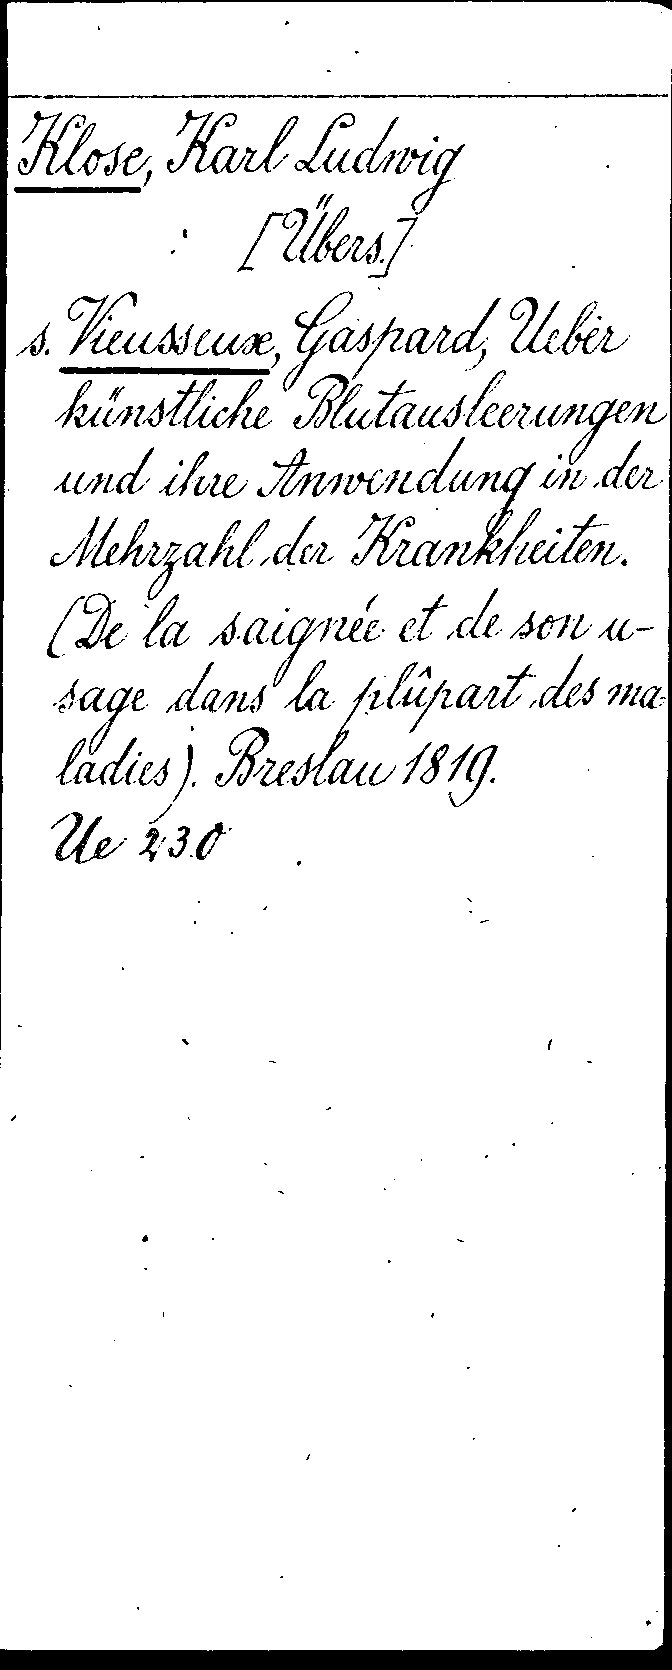 Klose, Karl Ludwig
[Übers.]
s. Vieusseux, Gaspard, Ueber
künstliche Blutausleerungen
und ihre Anwendung in der
Mehrzahl der Krankheiten.
(De la saignée et de son u-
sage dans la plûpart des ma-
ladies). Breslau 1819.
Ue 230